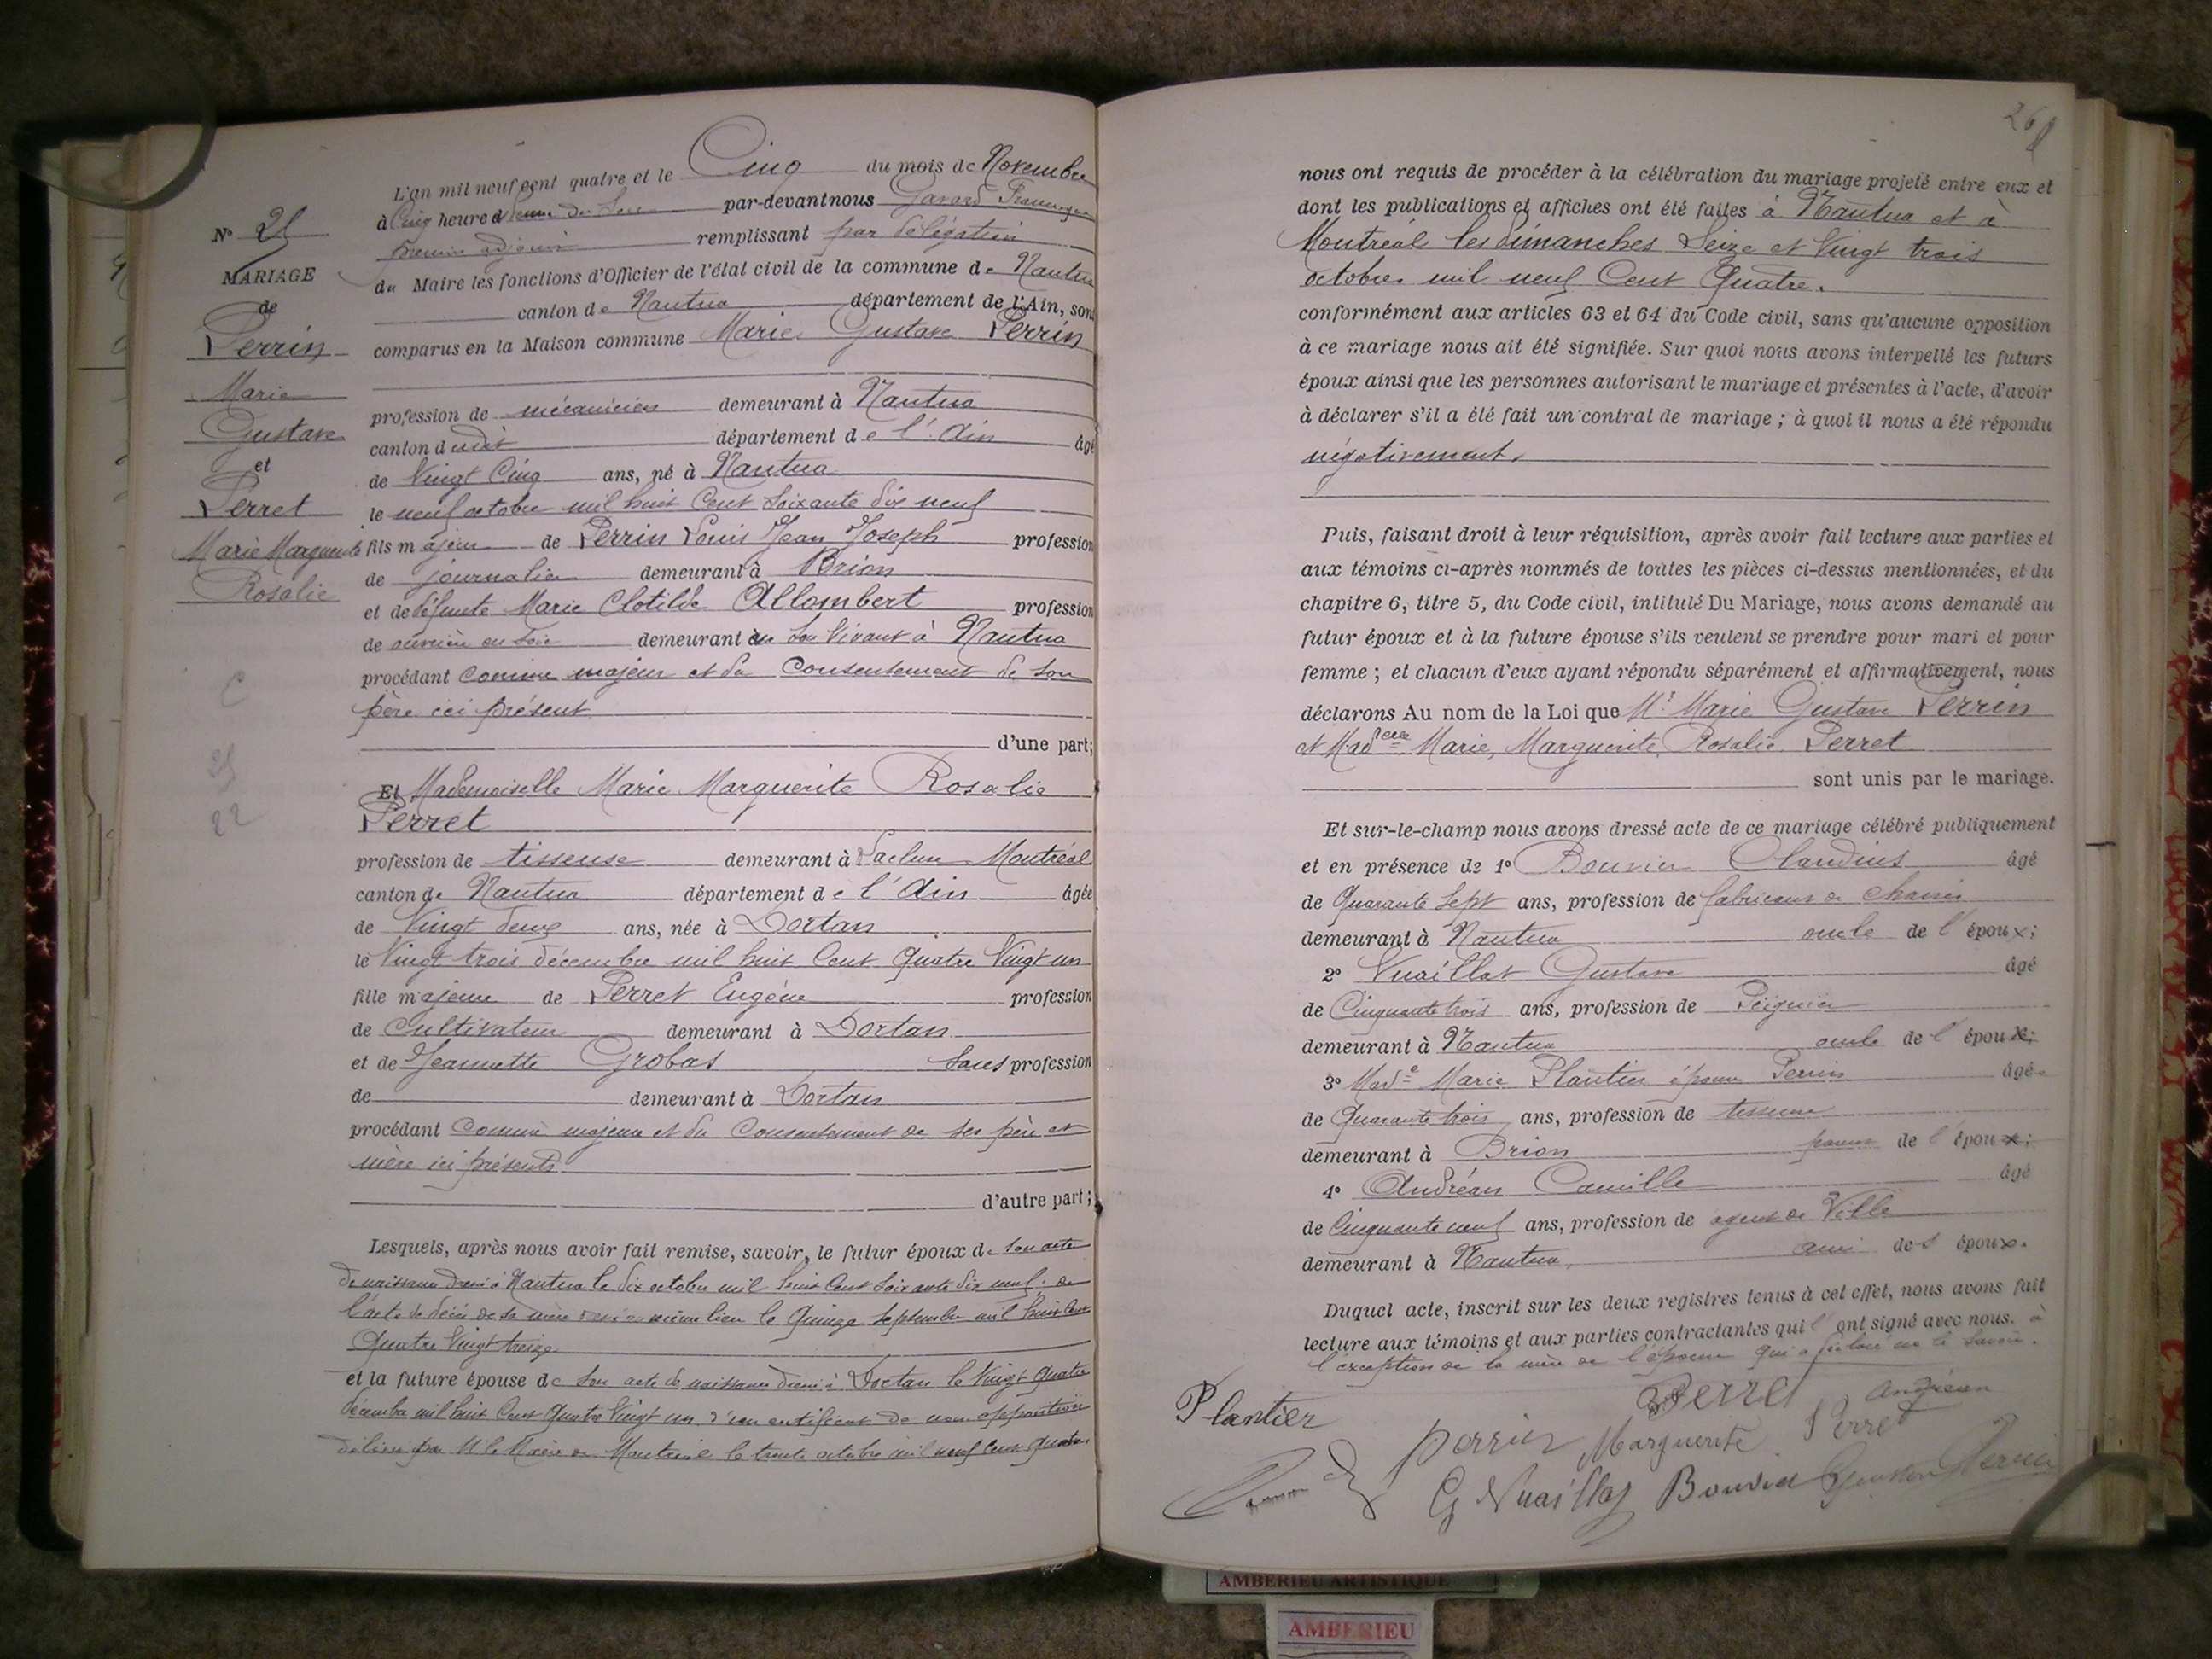 L'an mil neuf cent quatre et le Cinq du mois de Novembre
à Cinq heures du Soir par-devant nous Gavard
premier adjoint remplissant par délégation
du Maire les fonctions d'Officier de l'état civil de la commune de Nantua
canton de Nantua département de l'Ain, sont
comparus en la Maison commune Marie Gustave Perrin
N° 21
MARIAGE
de
Perrin
Marie
Gustave
et
Perret
Marie Marguerite
Rosalie
profession de mécanicien demeurant à Nantua
canton dudit département de l'Ain âgé
de Vingt Cinq ans, né à Nantua
le neuf octobre mil huit Cent Soixante dix neuf
fils majeur de Perrin Louis Jean Joseph profession
de journalier demeurant à Brion
et de défunte Marie Clotilde Allombert profession
de ouvrière en Soie demeurant en Son Vivant à Nantua
procédant comme majeur et du Consentement de son
père ici présent
d'une part;
Et Mademoiselle Marie Marguerite Rosalie
Perret
profession de tisseuse demeurant à Montréal
canton de Nantua département de l'Ain âgée
de Vingt deux ans, née à Dortan
le Vingt trois décembre mil huit Cent Quatre Vingt un
fille majeure de Perret Eugène profession
de Cultivateur demeurant à Dortan
et de Jeannette Grobas Sans profession
de demeurant à Dortan
procédant Comme majeure et du Consentement de ses père et
mère ici présents
d'autre part;
Lesquels, après nous avoir fait remise, savoir, le futur époux de Son acte
de naissance dressé à Nantua le dix octobre mil huit Cent Soixante dix neuf. de
l'acte de décès de sa mère même lieu le Quinze Septembre mil huit Cent
Quatre Vingt treize
et la future épouse de Son acte de naissance dressé à Dortan le Vingt Quatre
décembre mil huit Cent Quatre Vingt un d'un certificat de non opposition
délivré par M. le Maire de Montréal le trente octobre mil neuf Cent Quatre
C
21
22
26
nous ont requis de procéder à la célébration du mariage projeté entre eux et
dont les publications et affiches ont été faites à Nantua et à
Montréal les dimanches Seize et Vingt trois
octobre mil neuf Cent Quatre.
conformément aux articles 63 et 64 du Code civil, sans qu'aucune opposition
à ce mariage nous ait été signifiée. Sur quoi nous avons interpellé les futurs
époux ainsi que les personnes autorisant le mariage et présentes à l'acte, d'avoir
à déclarer s'il a été fait un contrat de mariage ; à quoi il nous a été répondu
négativement.
Puis, faisant droit à leur réquisition, après avoir fait lecture aux parties et
aux témoins ci-après nommés de toutes les pièces ci-dessus mentionnées, et du
chapitre 6, titre 5, du Code civil, intitulé Du Mariage, nous avons demandé au
futur époux et à la future épouse s'ils veulent se prendre pour mari et pour
femme ; et chacun d'eux ayant répondu séparément et affirmativement, nous
déclarons Au nom de la Loi que Mr Marie Gustave Perrin
et Madelle Marie, Marguerite, Rosalie Perret
sont unis par le mariage.
Et sur-le-champ nous avons dressé acte de ce mariage célébré publiquement
et en présence de 1° Bouvier Claudius âgé
de Quarante Sept ans, profession de fabricant de chaises
demeurant à Nantua oncle de l'époux;
2° Vuaillat Gustave âgé
de Cinquante trois ans, profession de Peignier
demeurant à Nantua oncle de l'époux;
3° Made Marie Plantier épouse Perrin âgée
de Quarante trois ans, profession de tisseuse
demeurant à Brion de l'époux;
4° Andréan Camille âgé
de Cinquante neuf ans, profession de agent de Ville
demeurant à Nantua, ami des époux.
Duquel acte, inscrit sur les deux registres tenus à cet effet, nous avons fait
lecture aux témoins et aux parties contractantes qui l'ont signé avec nous. à
l'exception de la mère de l'épouse qui a déclaré ne le savoir.
Perret Andréan
Plantier Perrin Marguerite Perret
G Vuaillat Bouvier Gustave Perrin
AMBERIEU ARTISTIQUE
AMBERIEU